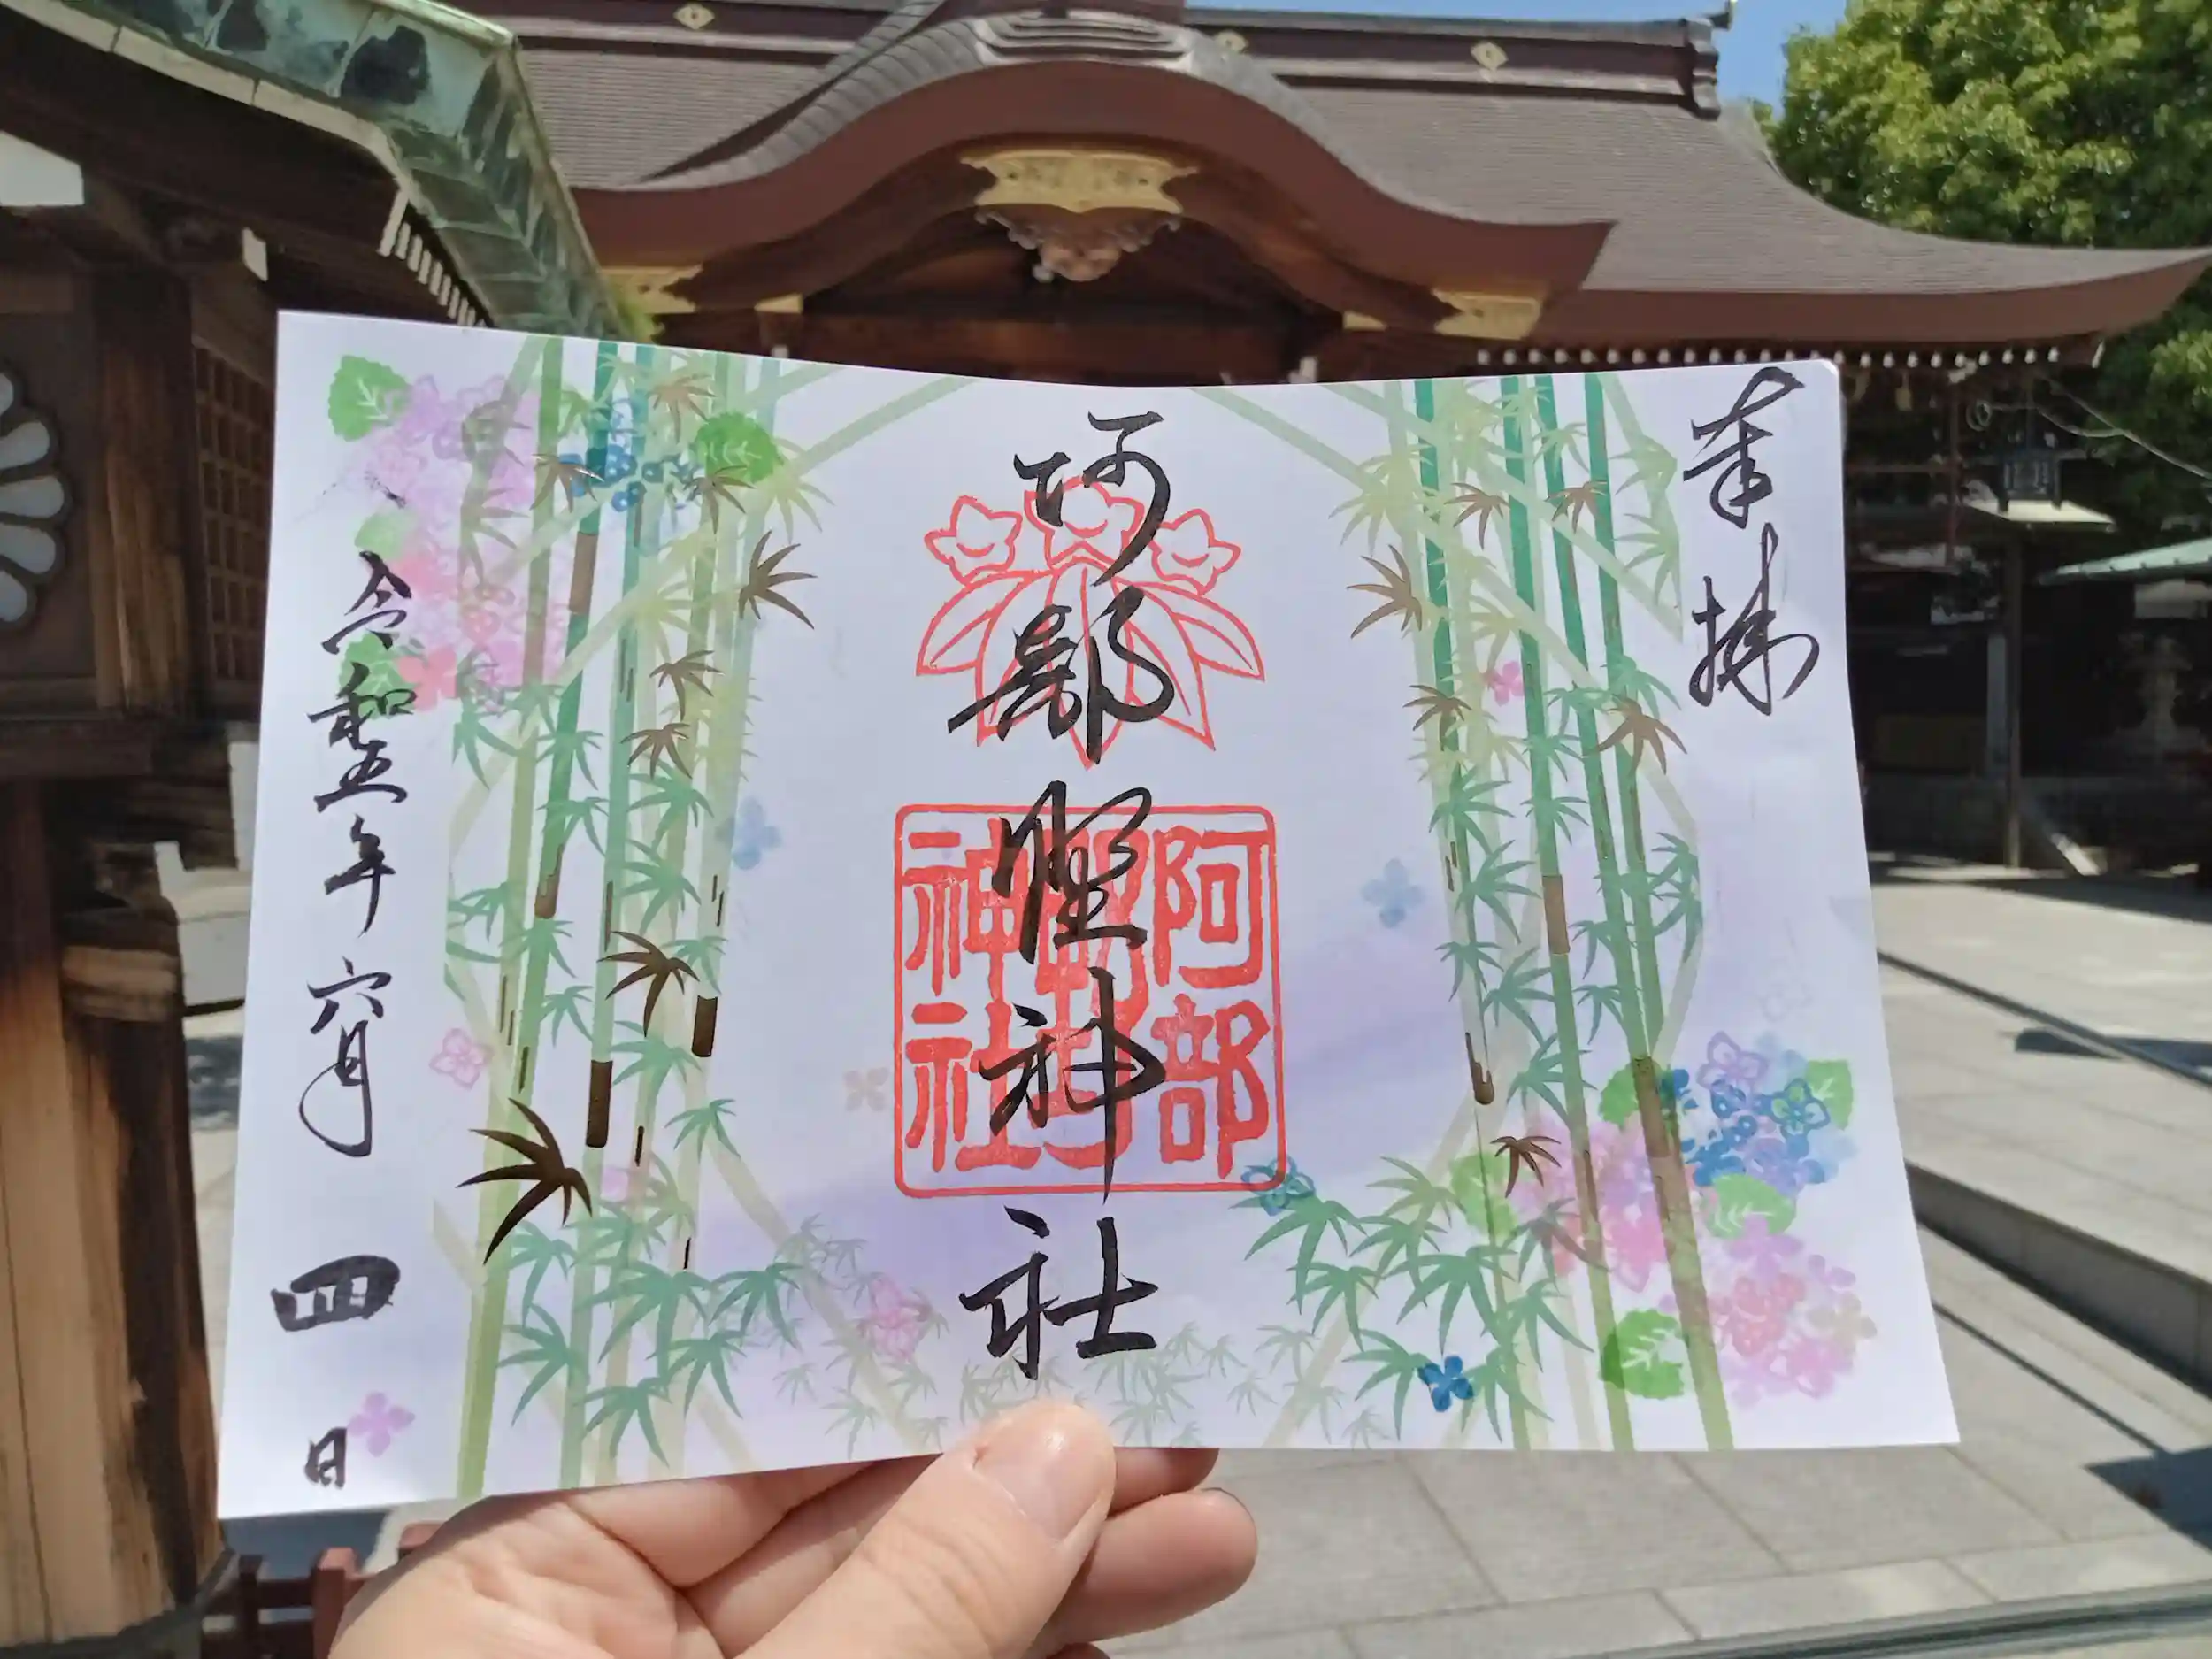 奉拝
阿部野神社
阿部
野
神社
令和五年六月四日